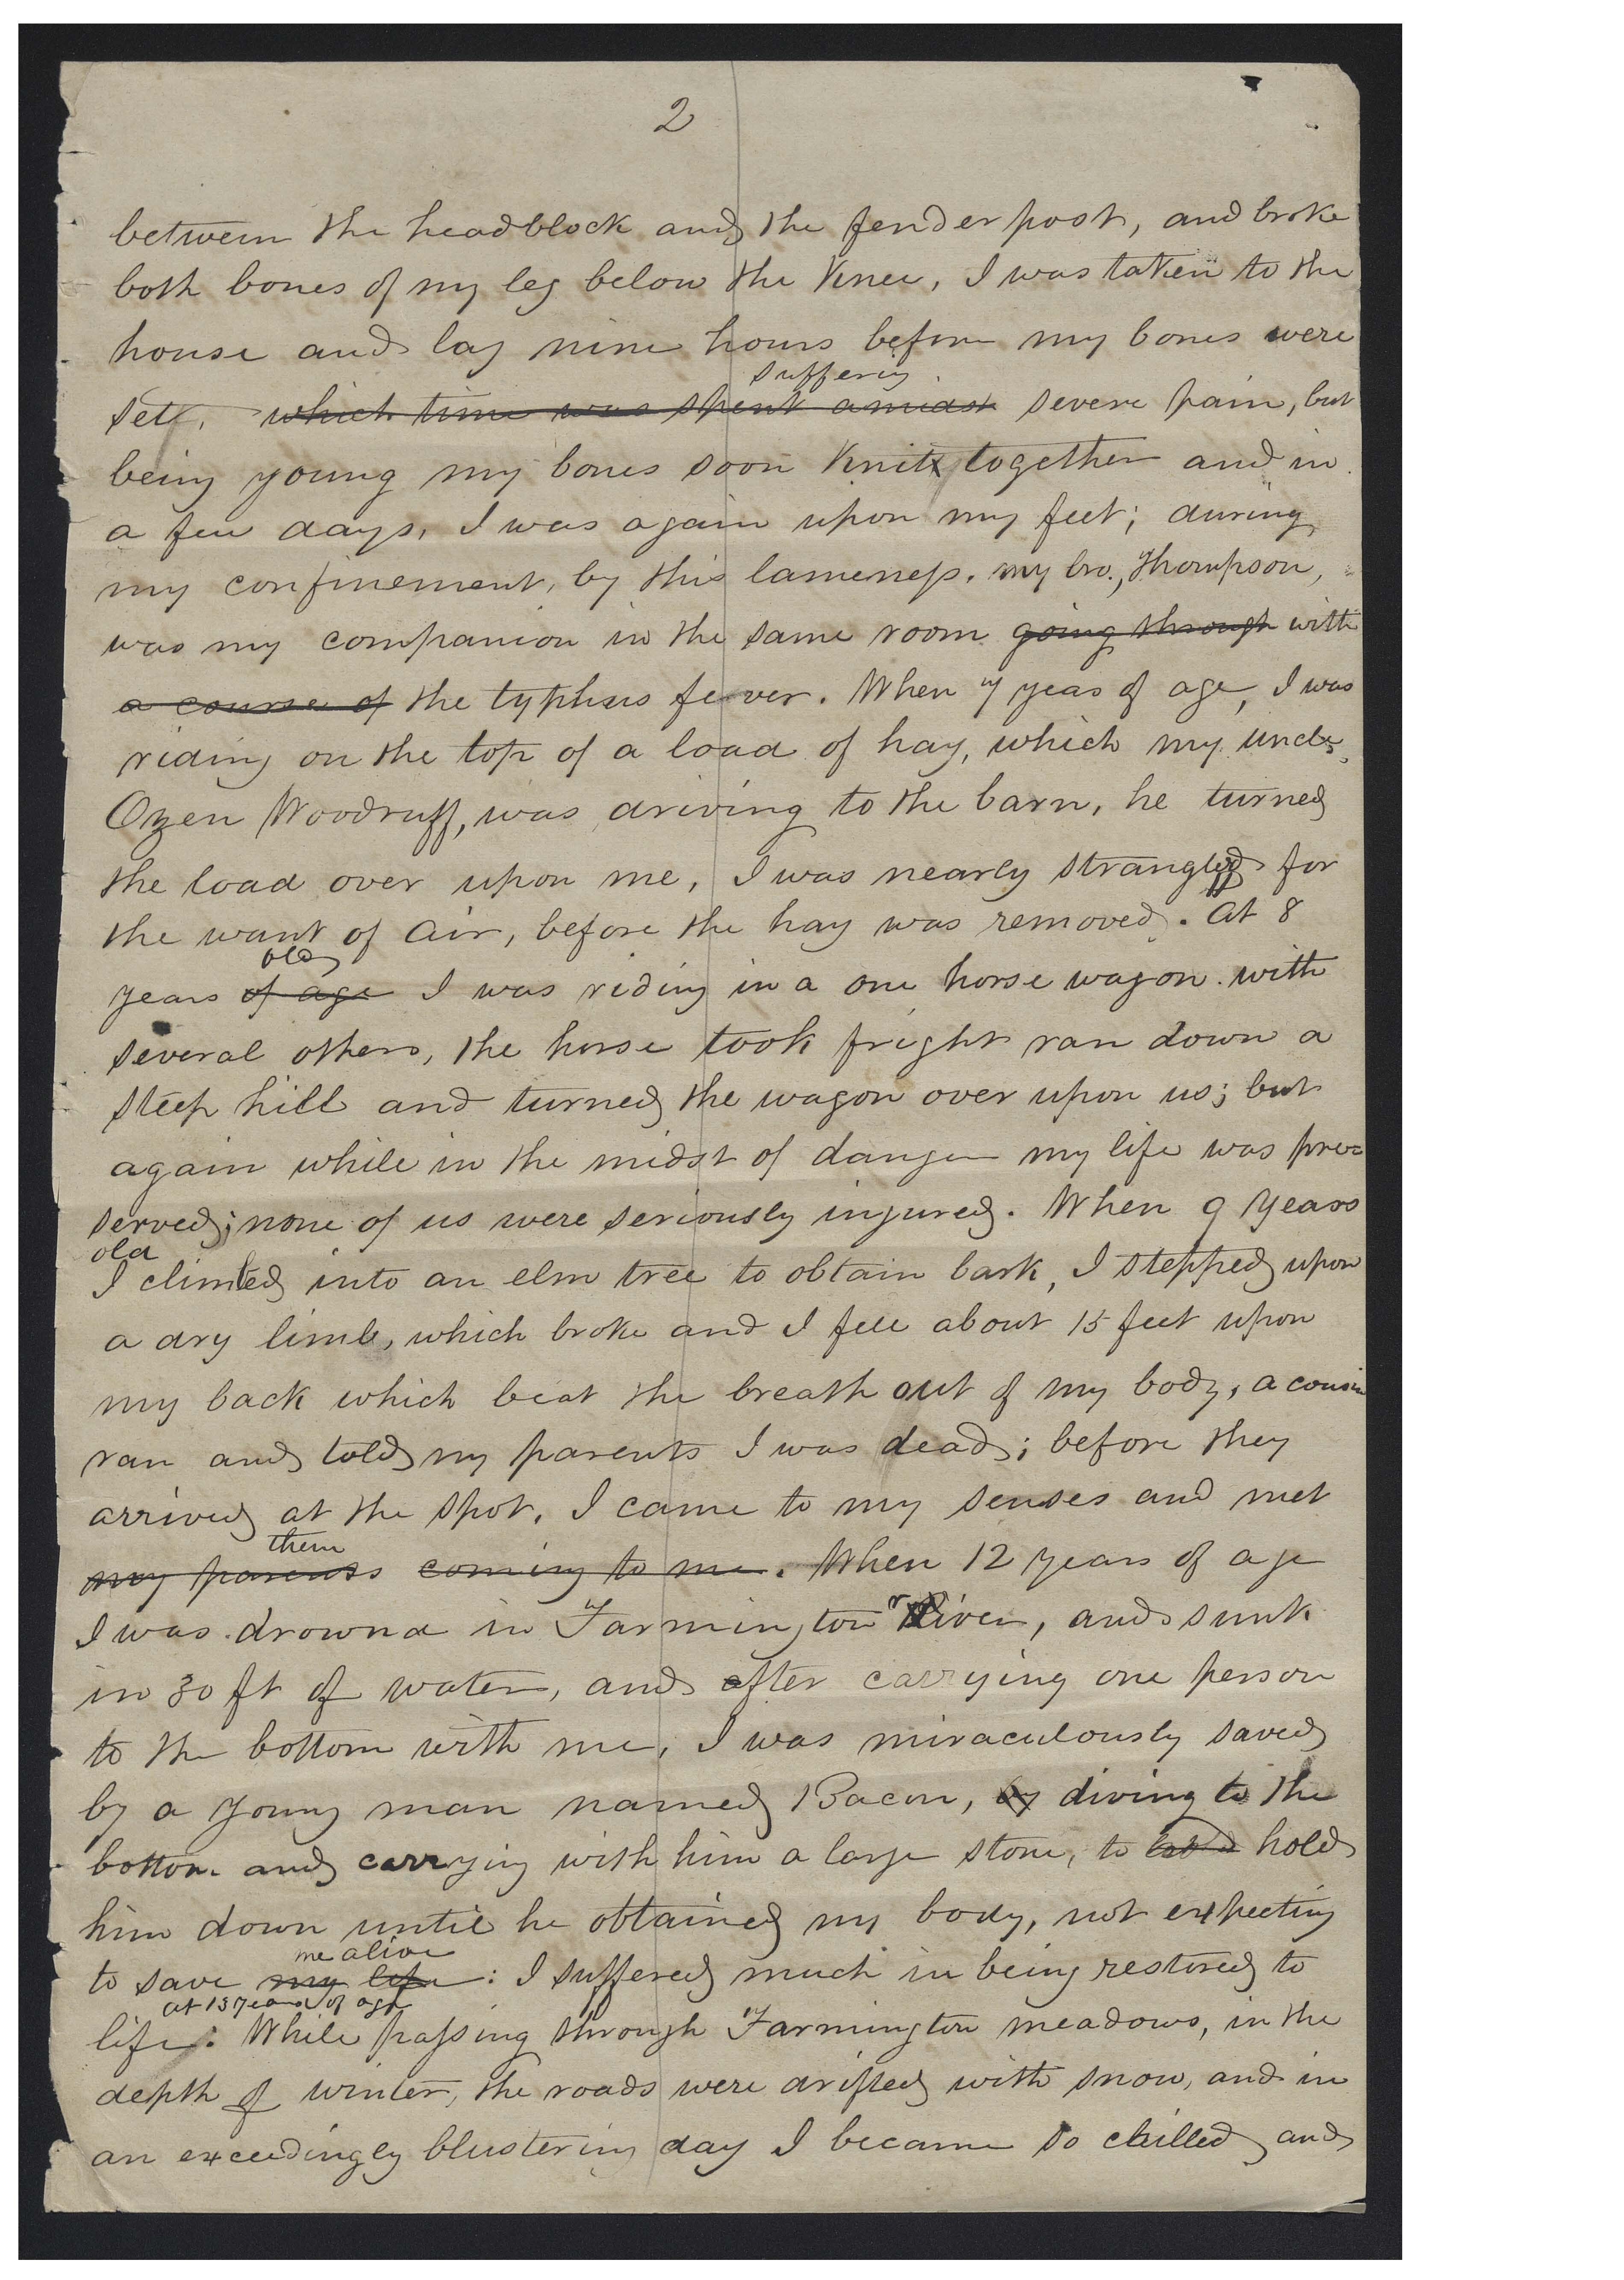 2
between the headblock and the fender post, and broke
both bones of my leg below the Knee, I was taken to the
house and lay nine hours before my bones were
suffering
set, which time was spent amidst severe pain, but
being young my bones soon Knit together and in
a few days, I was again upon my feet; during
my confinement, by this lameness. my bro., Thompson,
was my companion in the same room going through with
a course of the typhus fever. When 7 yeas of age, I was
riding on the top of a load of hay, which my uncle,
Ozen Woodruff, was driving to the barn, he turned
the load over upon me, I was nearly strangled for
the want of air, before the hay was removed. At 8
old
years of age I was riding in a one horse wagon with
several others, the horse took fright ran down a
steep hill and turned the wagon over upon us; but
again while in the midst of danger my life was pre=
served; none of us were seriously injured. When 9 years
old
I climbed into an elm tree to obtain bark, I stepped upon
a dry limb, which broke and I fell about 15 feet upon
my back which beat the breath out of my body, a cousin
ran and told my parents I was dead; before they
arrived at the spot, I came to my senses and met
them
my parents coming to me. When 12 years of age
I was drownd in Farmington river, and sunk
in 30 ft of water, and after carrying one person
to the bottom with me, I was miraculously saved
by a young man named Bacon, by diving to the
bottom and carrying with him a large stone, to hold
him down until he obtained my body, not expecting
me alive
to save my life: I suffered much in being restored to
at 13 years of age
life. While passing through Farmington meadows, in the
depth of winter, the roads were drifted with snow, and in
an exceedingly blustering day I became so chilled and